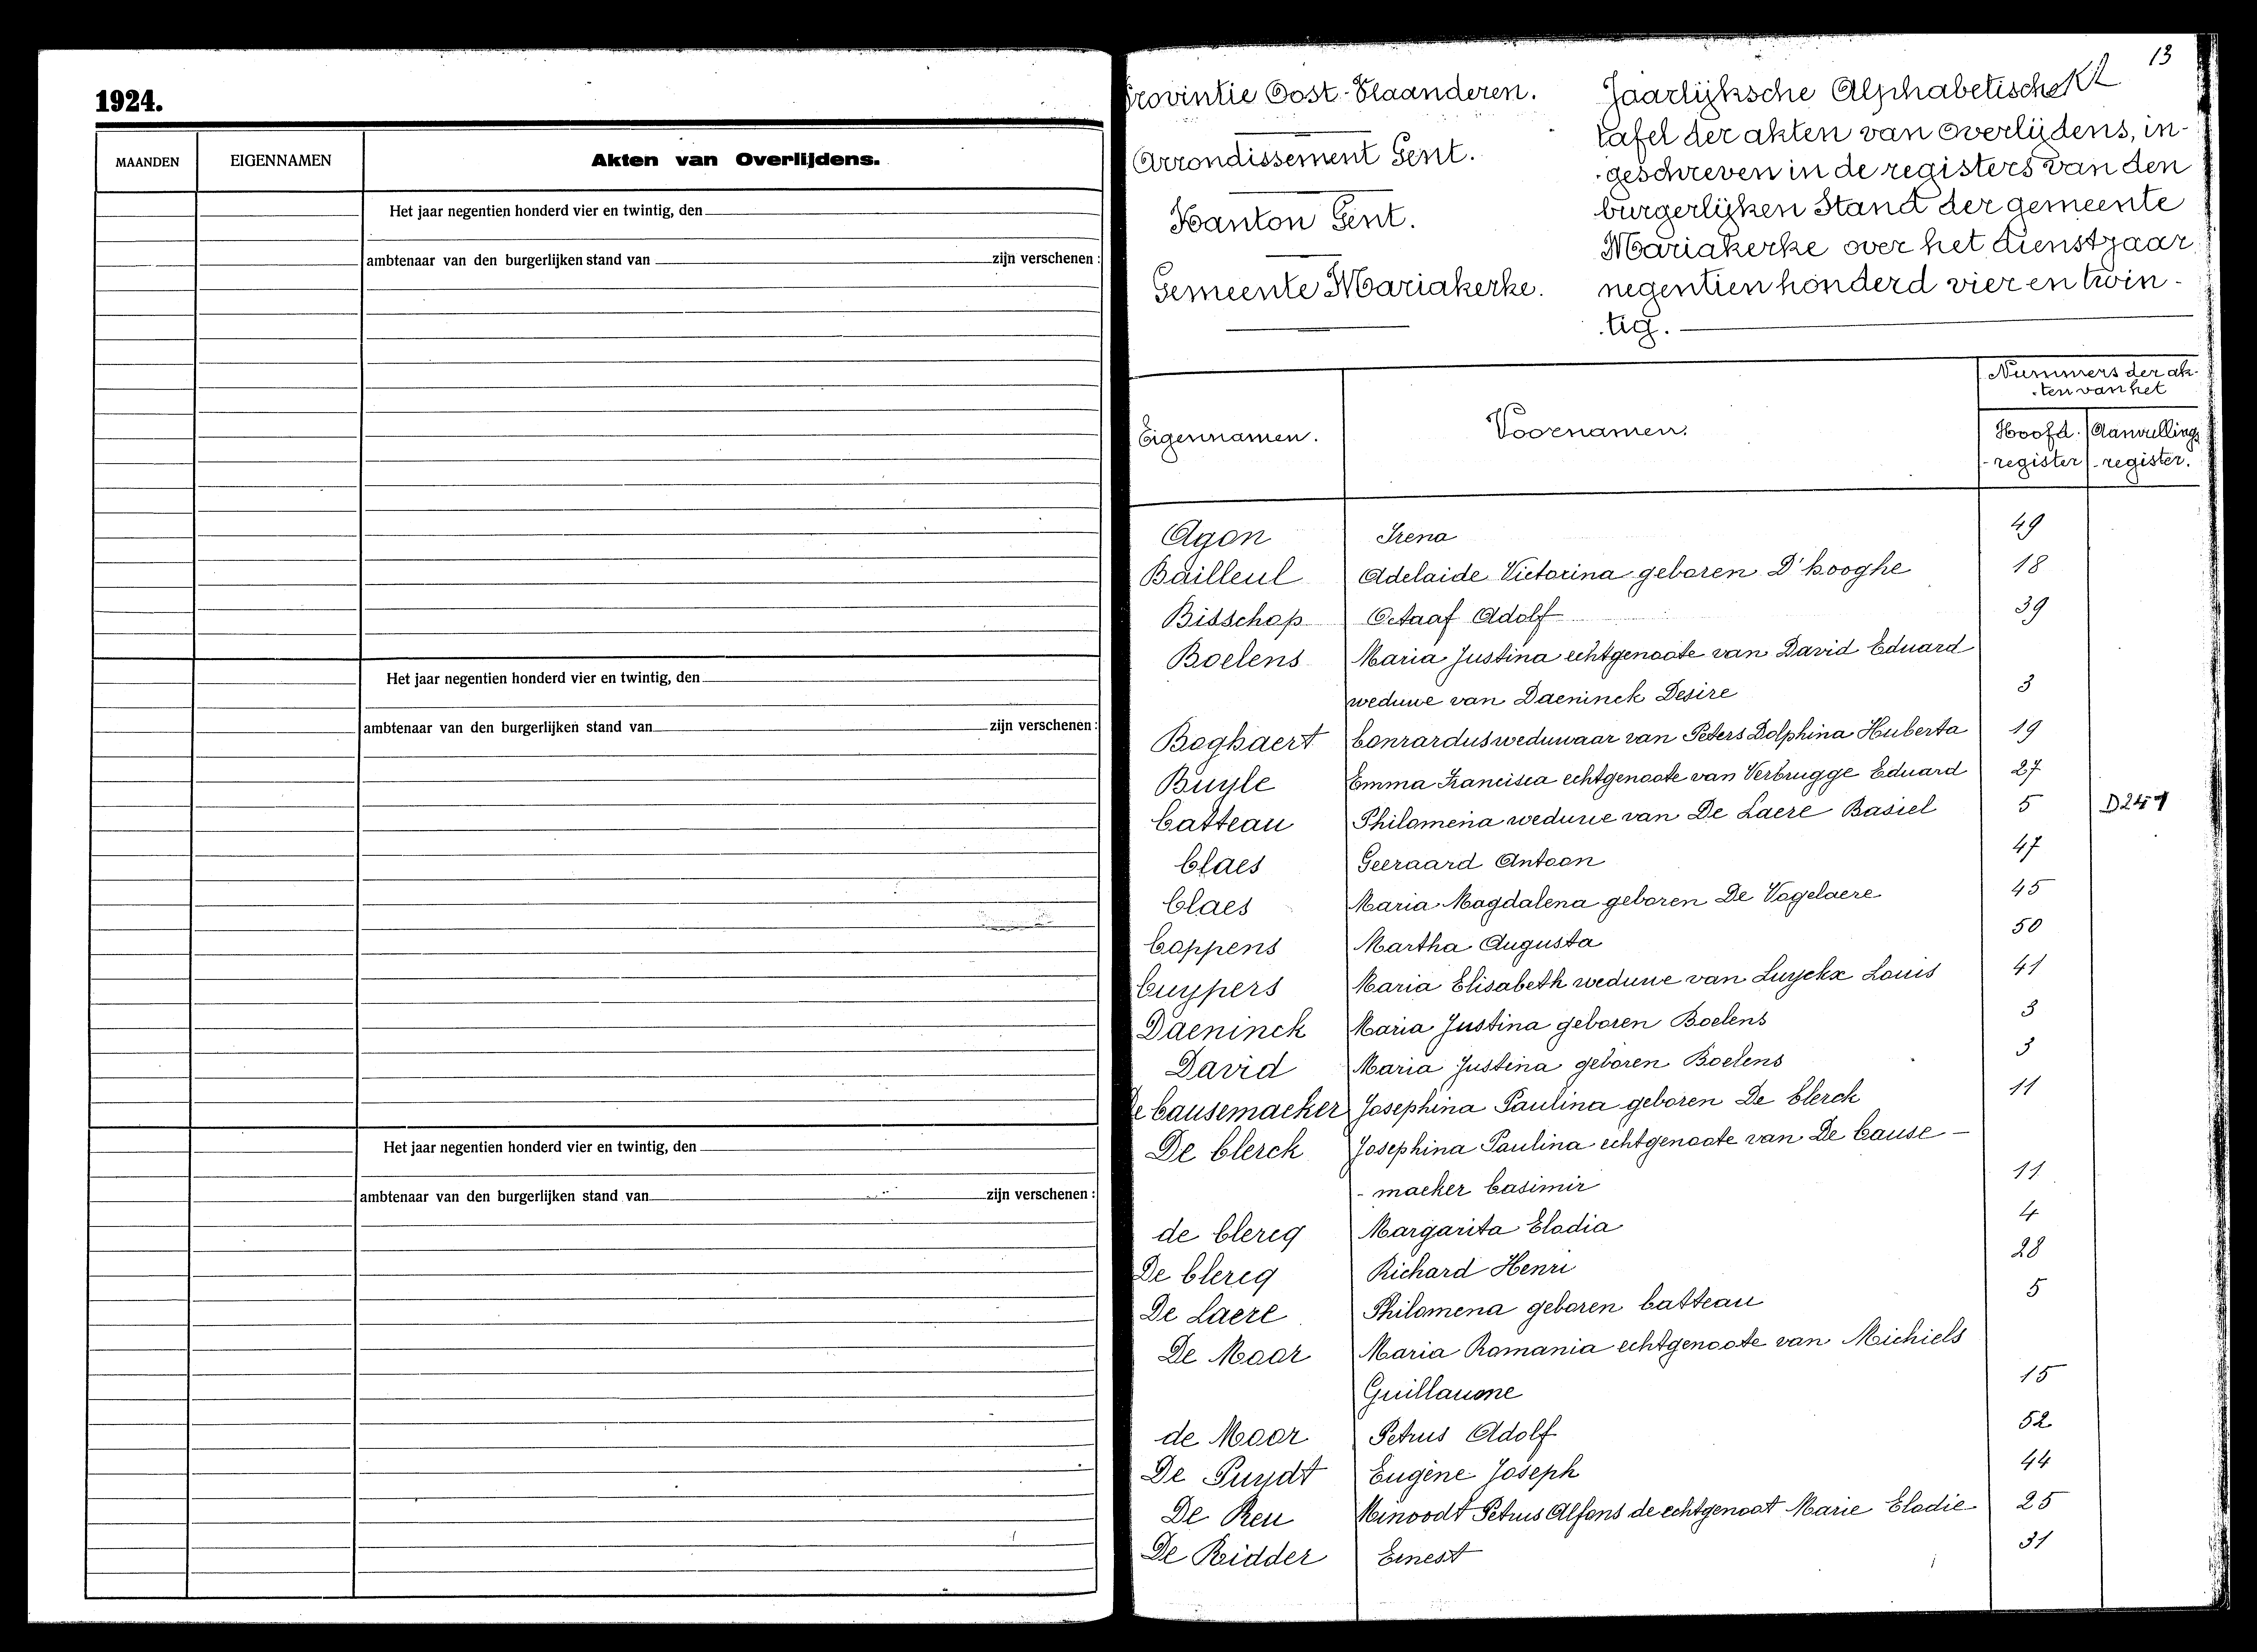 1924.
MAANDEN EIGENNAMEN Akten van Overlijdens.
Het jaar negentien honderd vier en twintig, den
ambtenaar van den burgerlijken stand van zijn verschenen :
Het jaar negentien honderd vier en twintig, den
ambtenaar van den burgerlijken stand van zijn verschenen :
Het jaar negentien honderd vier en twintig, den
ambtenaar van den burgerlijken stand van zijn verschenen :
13
Provintie Oost-Vlaanderen.
Arrondissement Gent.
Kanton Gent.
Gemeente Mariakerke.
Jaarlijksche Alphabetische
tafel der akten van overlijdens, in-
geschreven in de registers van den
burgerlijken Stand der gemeente
Mariakerke over het dienstjaar
negentien honderd vier en twin-
tig.
Eigennamen. Voornamen. Nummers der ak-
ten van het
Hoofd- Aanvullings
-register -register.
Agon Irena 49
Bailleul Adelaide Victorina geboren D'hooghe 18
Bisschop Octaaf Adolf 39
Boelens Maria Justina echtgenoote van David Eduard
weduwe van Daeninck Desire 3
Boghaert Conrardus weduwaar van Peters Dolphina Huberta 19
Buyle Emma Francisca echtgenoote van Verbrugge Eduard 27
Catteau Philomena weduwe van De Laere Basiel 5
Claes Geeraard Antoon 47
Claes Maria Magdalena geboren De Vogelaere 45
Coppens Martha Augusta 50
Cuypers Maria Elisabeth weduwe van Luyckx Louis 41
Daeninck Maria Justina geboren Boelens 3
David Maria Justina geboren Boelens 3
De Causemaeker Josephina Paulina geboren De Clerck 11
De Clerck Josephina Paulina echtgenoote van De Cause-
-maeker Casimir 11
de Clercq Margarita Elodia 4
De Clercq Richard Henri 28
De Laere Philomena geboren Catteau 5
De Moor Maria Romania echtgenoote van Michiels
Guillaume 15
de Moor Petrus Adolf 52
De Puydt Eugène Joseph 44
De Reu Minoodt Petrus Alfons de echtgenoot Marie Elodie 25
De Ridder Ernest 31